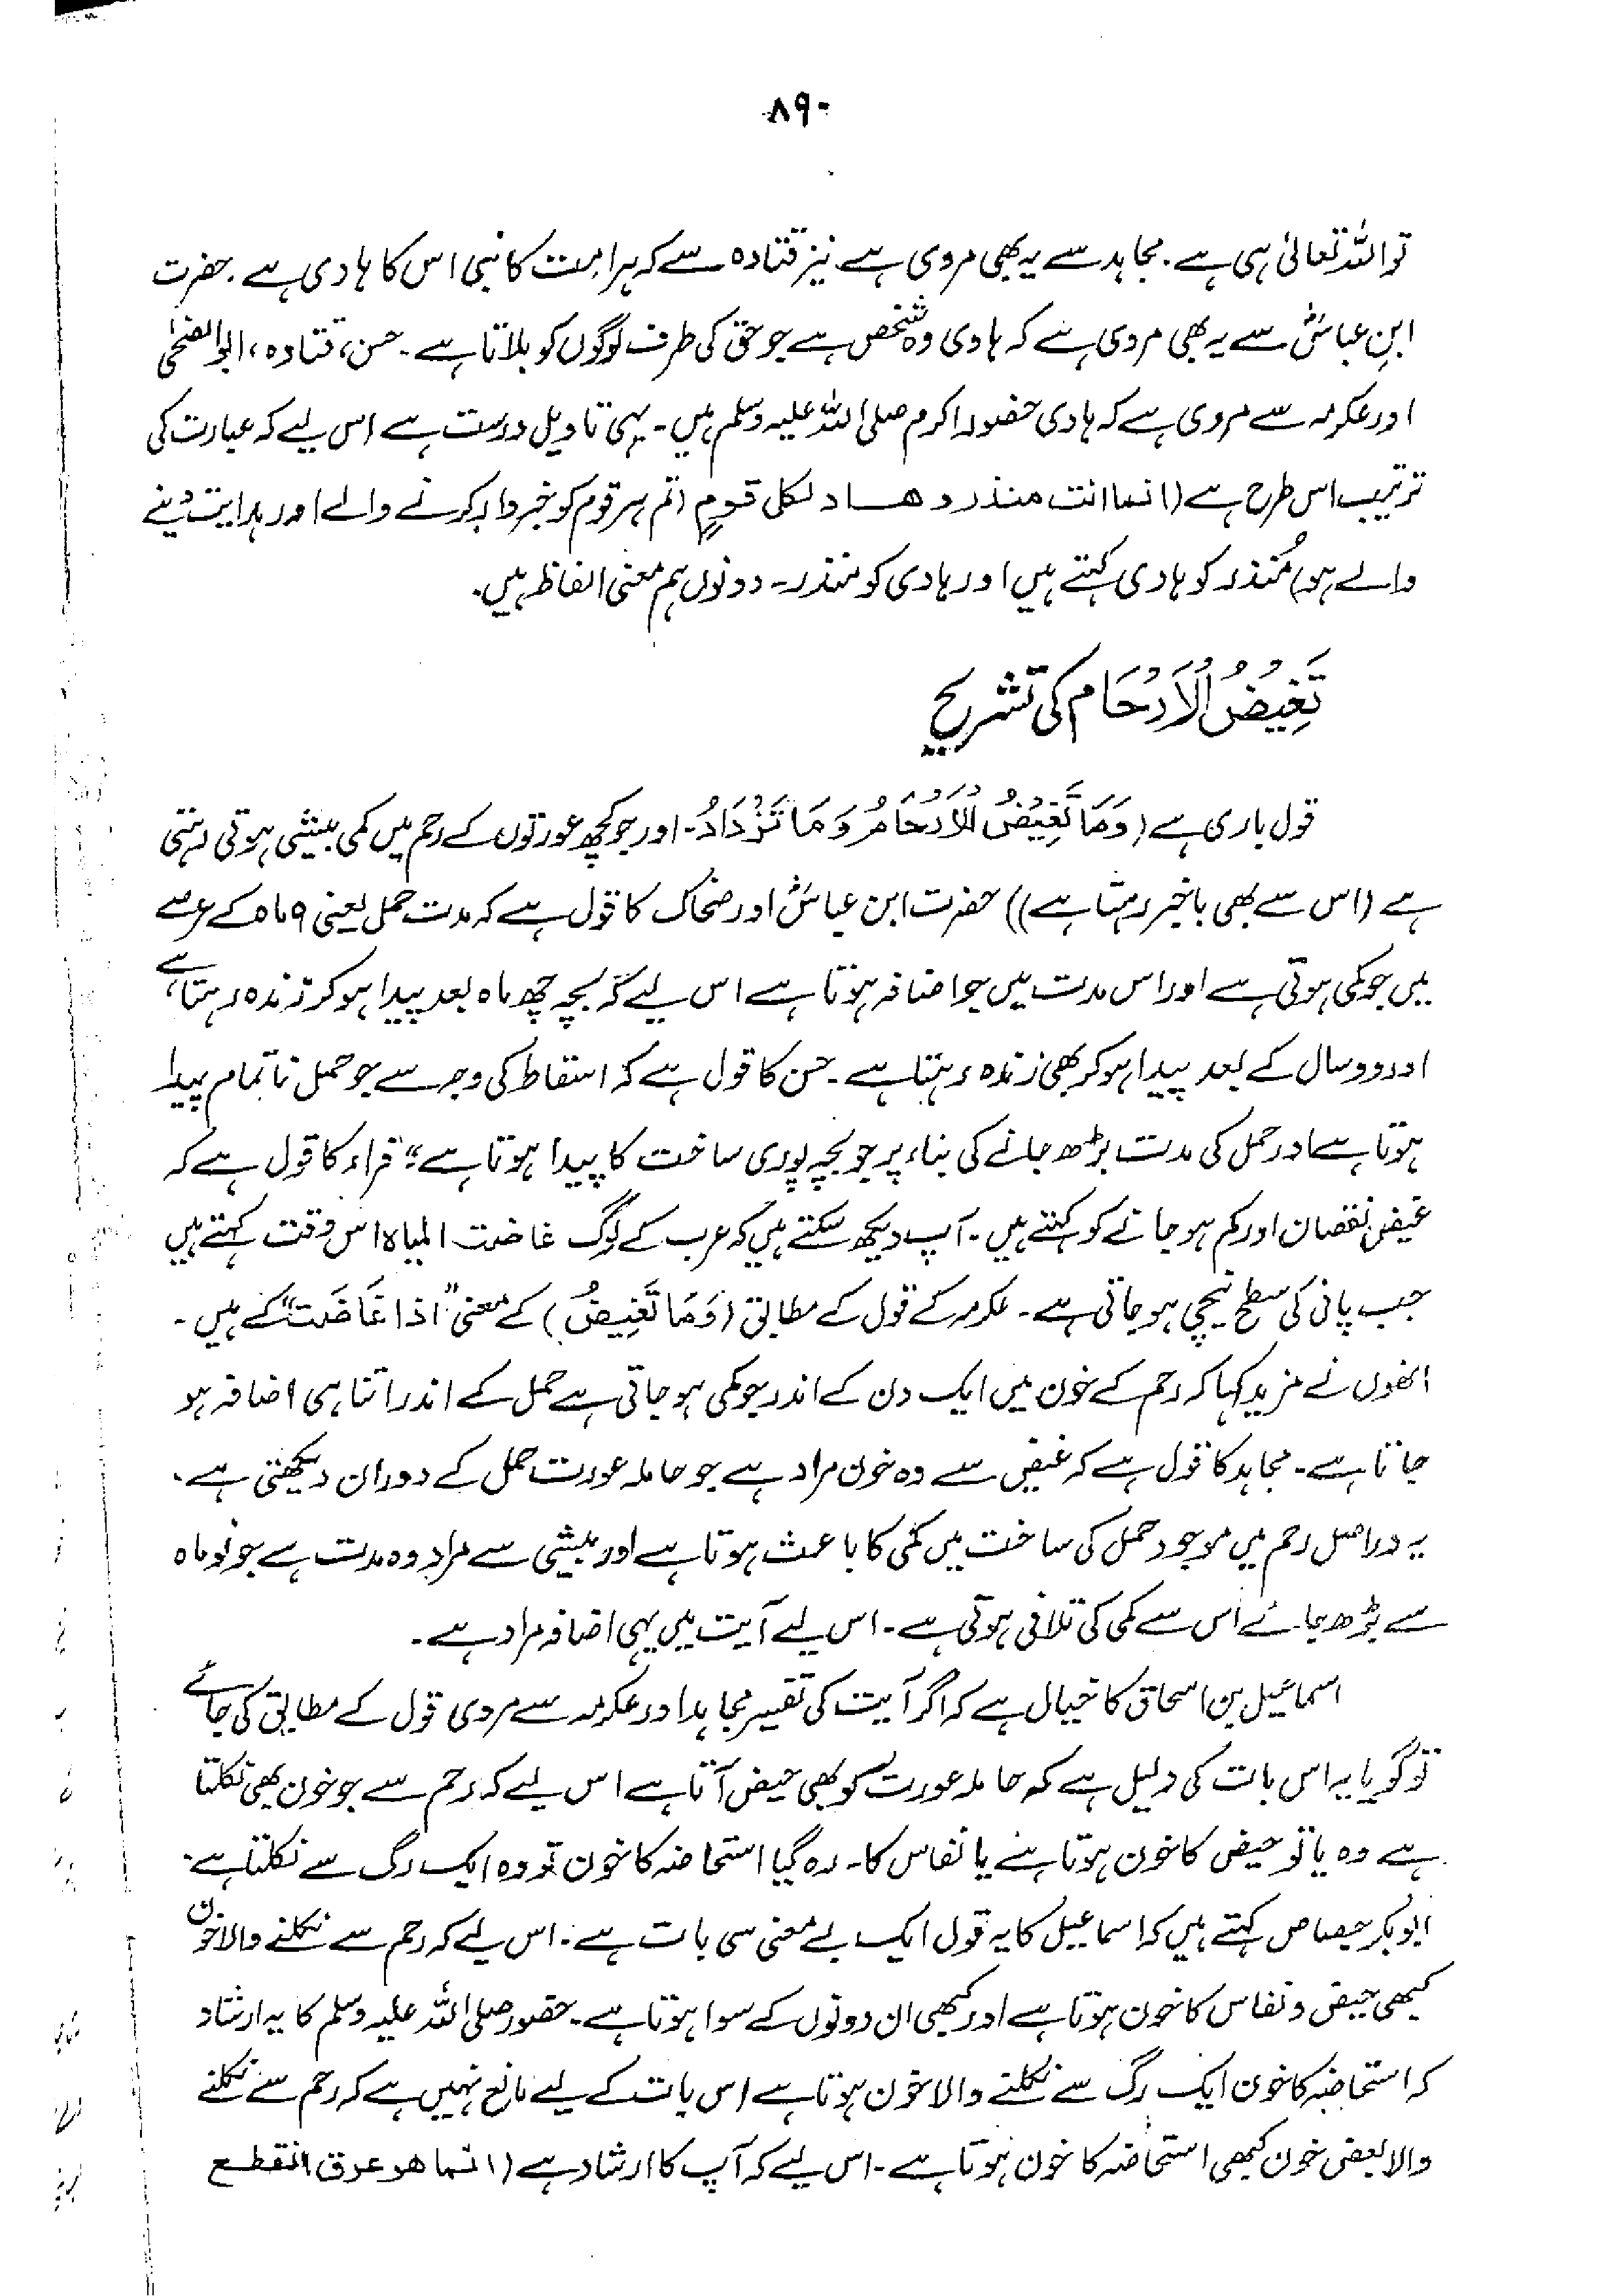 ۸۹۰
تو اللہ تعالیٰ ہی ہے۔ مجاہد سے یہ بھی مروی ہے نیز قتادہ سے کہ ہر امت کا نبی اس کا ہادی ہے۔ حضرت
ابن عباسؓ سے یہ بھی مروی ہے کہ ہادی وہ شخص ہے جو حق کی طرف لوگوں کو بلاتا ہے۔ حسن، قتادہ، ابوالضحیٰ
اور عکرمہ سے مروی ہے کہ ہادی حضور اکرم صلی اللہ علیہ وسلم ہیں۔ یہی تاویل درست ہے اس لیے کہ عبارت کی
ترتیب اس طرح ہے (انما انت منذر و ھاد لکل قومٍ (تم ہر قوم کو خبردار کرنے والے اور ہدایت دینے
والے ہو) مُنذر کو ہادی کہتے ہیں اور ہادی کو منذر۔ دونوں ہم معنی الفاظ ہیں۔
تَغِیْضُ الْاَرْحَام کی تشریح
قول باری ہے (وَمَا تَغِیْضُ الْاَرْحَامُ وَمَا تَزْدَادُ۔ اور جو کچھ عورتوں کے رحم میں کمی بیشی ہوتی رہتی
ہے (اس سے بھی باخبر رہتا ہے)) حضرت ابن عباسؓ اور ضحاک کا قول ہے کہ مدت حمل یعنی ۹ ماہ کے عرصے
میں جو کمی ہوتی ہے اور اس مدت میں جو اضافہ ہوتا ہے اس لیے کہ بچہ چھ ماہ بعد پیدا ہو کر زندہ رہتا ہے،
اور دو سال کے بعد پیدا ہو کر بھی زندہ رہتا ہے۔ حسن کا قول ہے کہ اسقاط کی وجہ سے جو حمل ناتمام پیدا
ہوتا ہے اور حمل کی مدت بڑھ جانے کی بناء پر جو بچہ پوری ساخت کا پیدا ہوتا ہے؛ فراء کا قول ہے کہ
غیض نقصان اور کم ہو جانے کو کہتے ہیں۔ آپ دیکھ سکتے ہیں کہ عرب کے لوگ غاضت المیاہ اس وقت کہتے ہیں
جب پانی کی سطح نیچی ہو جاتی ہے۔ عکرمہ کے قول کے مطابق (وَمَا تَغِیْضُ) کے معنی "اذا غَاضَت" کے ہیں۔
انھوں نے مزید کہا کہ رحم کے خون میں ایک دن کے اندر جو کمی ہو جاتی ہے حمل کے اندر اتنا ہی اضافہ ہو
جاتا ہے۔ مجاہد کا قول ہے کہ غیض سے وہ خون مراد ہے جو حاملہ عورت حمل کے دوران دیکھتی ہے۔
یہ دراصل رحم میں موجود حمل کی ساخت میں کمی کا باعث ہوتا ہے اور بیشی سے مراد وہ مدت ہے جو نو ماہ
سے بڑھ جائے اس سے کمی کی تلافی ہوتی ہے۔ اس لیے آیت میں یہی اضافہ مراد ہے۔
اسماعیل بن اسحاق کا خیال ہے کہ اگر آیت کی تفسیر مجاہد اور عکرمہ سے مروی قول کے مطابق کی جائے
تو گویا یہ اس بات کی دلیل ہے کہ حاملہ عورت کو بھی حیض آتا ہے اس لیے کہ رحم سے جو خون بھی نکلتا
ہے وہ یا تو حیض کا خون ہوتا ہے یا نفاس کا۔ رہ گیا استحاضہ کا خون تو وہ ایک رگ سے نکلتا ہے۔
ابوبکر جصاص کہتے ہیں کہ اسماعیل کا یہ قول ایک بے معنی سی بات ہے۔ اس لیے کہ رحم سے نکلنے والا خون
کبھی حیض و نفاس کا خون ہوتا ہے اور کبھی ان دونوں کے سوا ہوتا ہے۔ حضور صلی اللہ علیہ وسلم کا یہ ارشاد
کہ استحاضہ کا خون ایک رگ سے نکلنے والا خون ہوتا ہے اس بات کے لیے مانع نہیں ہے کہ رحم سے نکلنے
والا بعض خون کبھی استحاضہ کا خون ہوتا ہے۔ اس لیے کہ آپ کا ارشاد ہے (انما ھو عرق انقطع